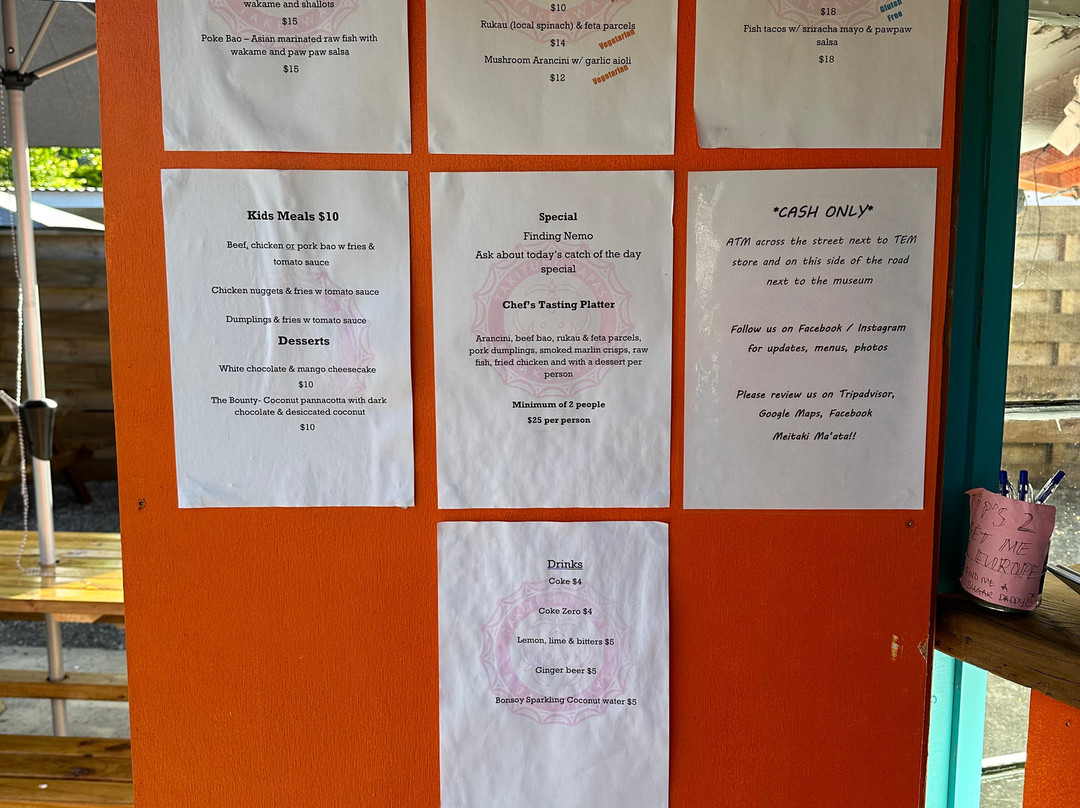 wakame and shallots
$15
Poke Bao – Asian marinated raw fish with
wakame and paw paw salsa
$15
$10
Rukau (local spinach) & feta parcels
$14
Vegetarian
Mushroom Arancini w/ garlic aioli
$12
Vegetarian
$18
Gluten
Free
Fish tacos w/ sriracha mayo & pawpaw
salsa
$18
Kids Meals $10
Beef, chicken or pork bao w fries &
tomato sauce
Chicken nuggets & fries w tomato sauce
Dumplings & fries w tomato sauce
Desserts
White chocolate & mango cheesecake
$10
The Bounty- Coconut pannacotta with dark
chocolate & desiccated coconut
$10
Special
Finding Nemo
Ask about today's catch of the day
special
Chef's Tasting Platter
Arancini, beef bao, rukau & feta parcels,
pork dumplings, smoked marlin crisps, raw
fish, fried chicken and with a dessert per
person
Minimum of 2 people
$25 per person
*CASH ONLY*
ATM across the street next to TEM
store and on this side of the road
next to the museum
Follow us on Facebook / Instagram
for updates, menus, photos
Please review us on Tripadvisor,
Google Maps, Facebook
Meitaki Ma'ata!!
Drinks
Coke $4
Coke Zero $4
Lemon, lime & bitters $5
Ginger beer $5
Bonsoy Sparkling Coconut water $5
2
ME
EUROPE
ME A
SUGAR DADDY